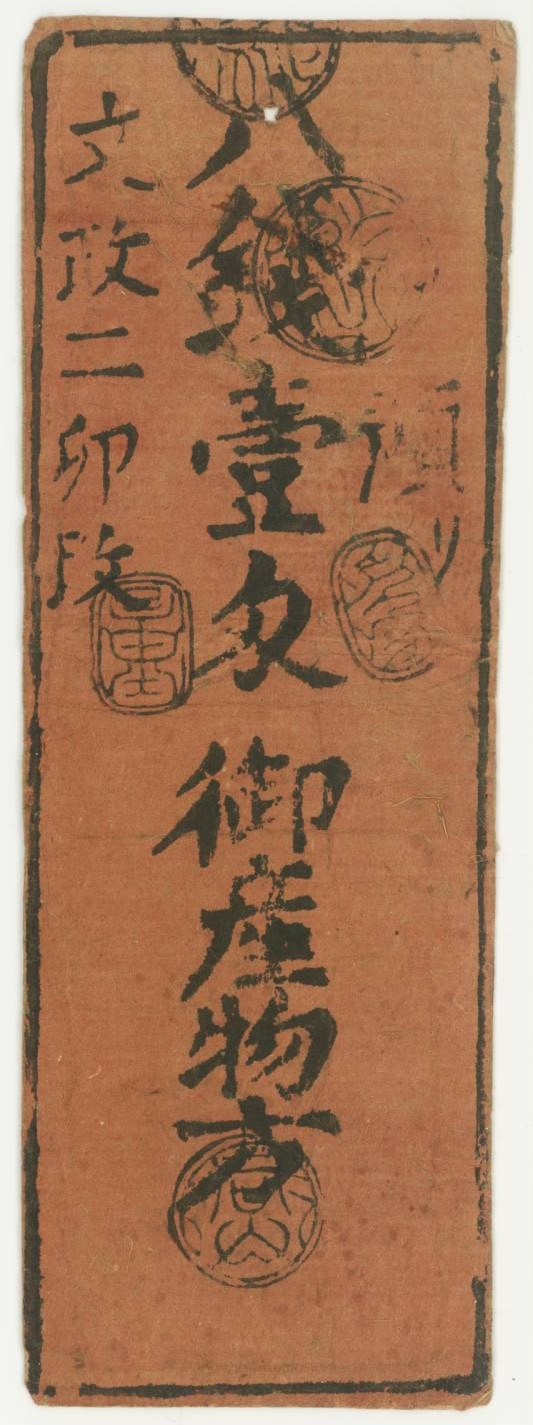 預り
八銭壹匁 御産物方
文政二卯改